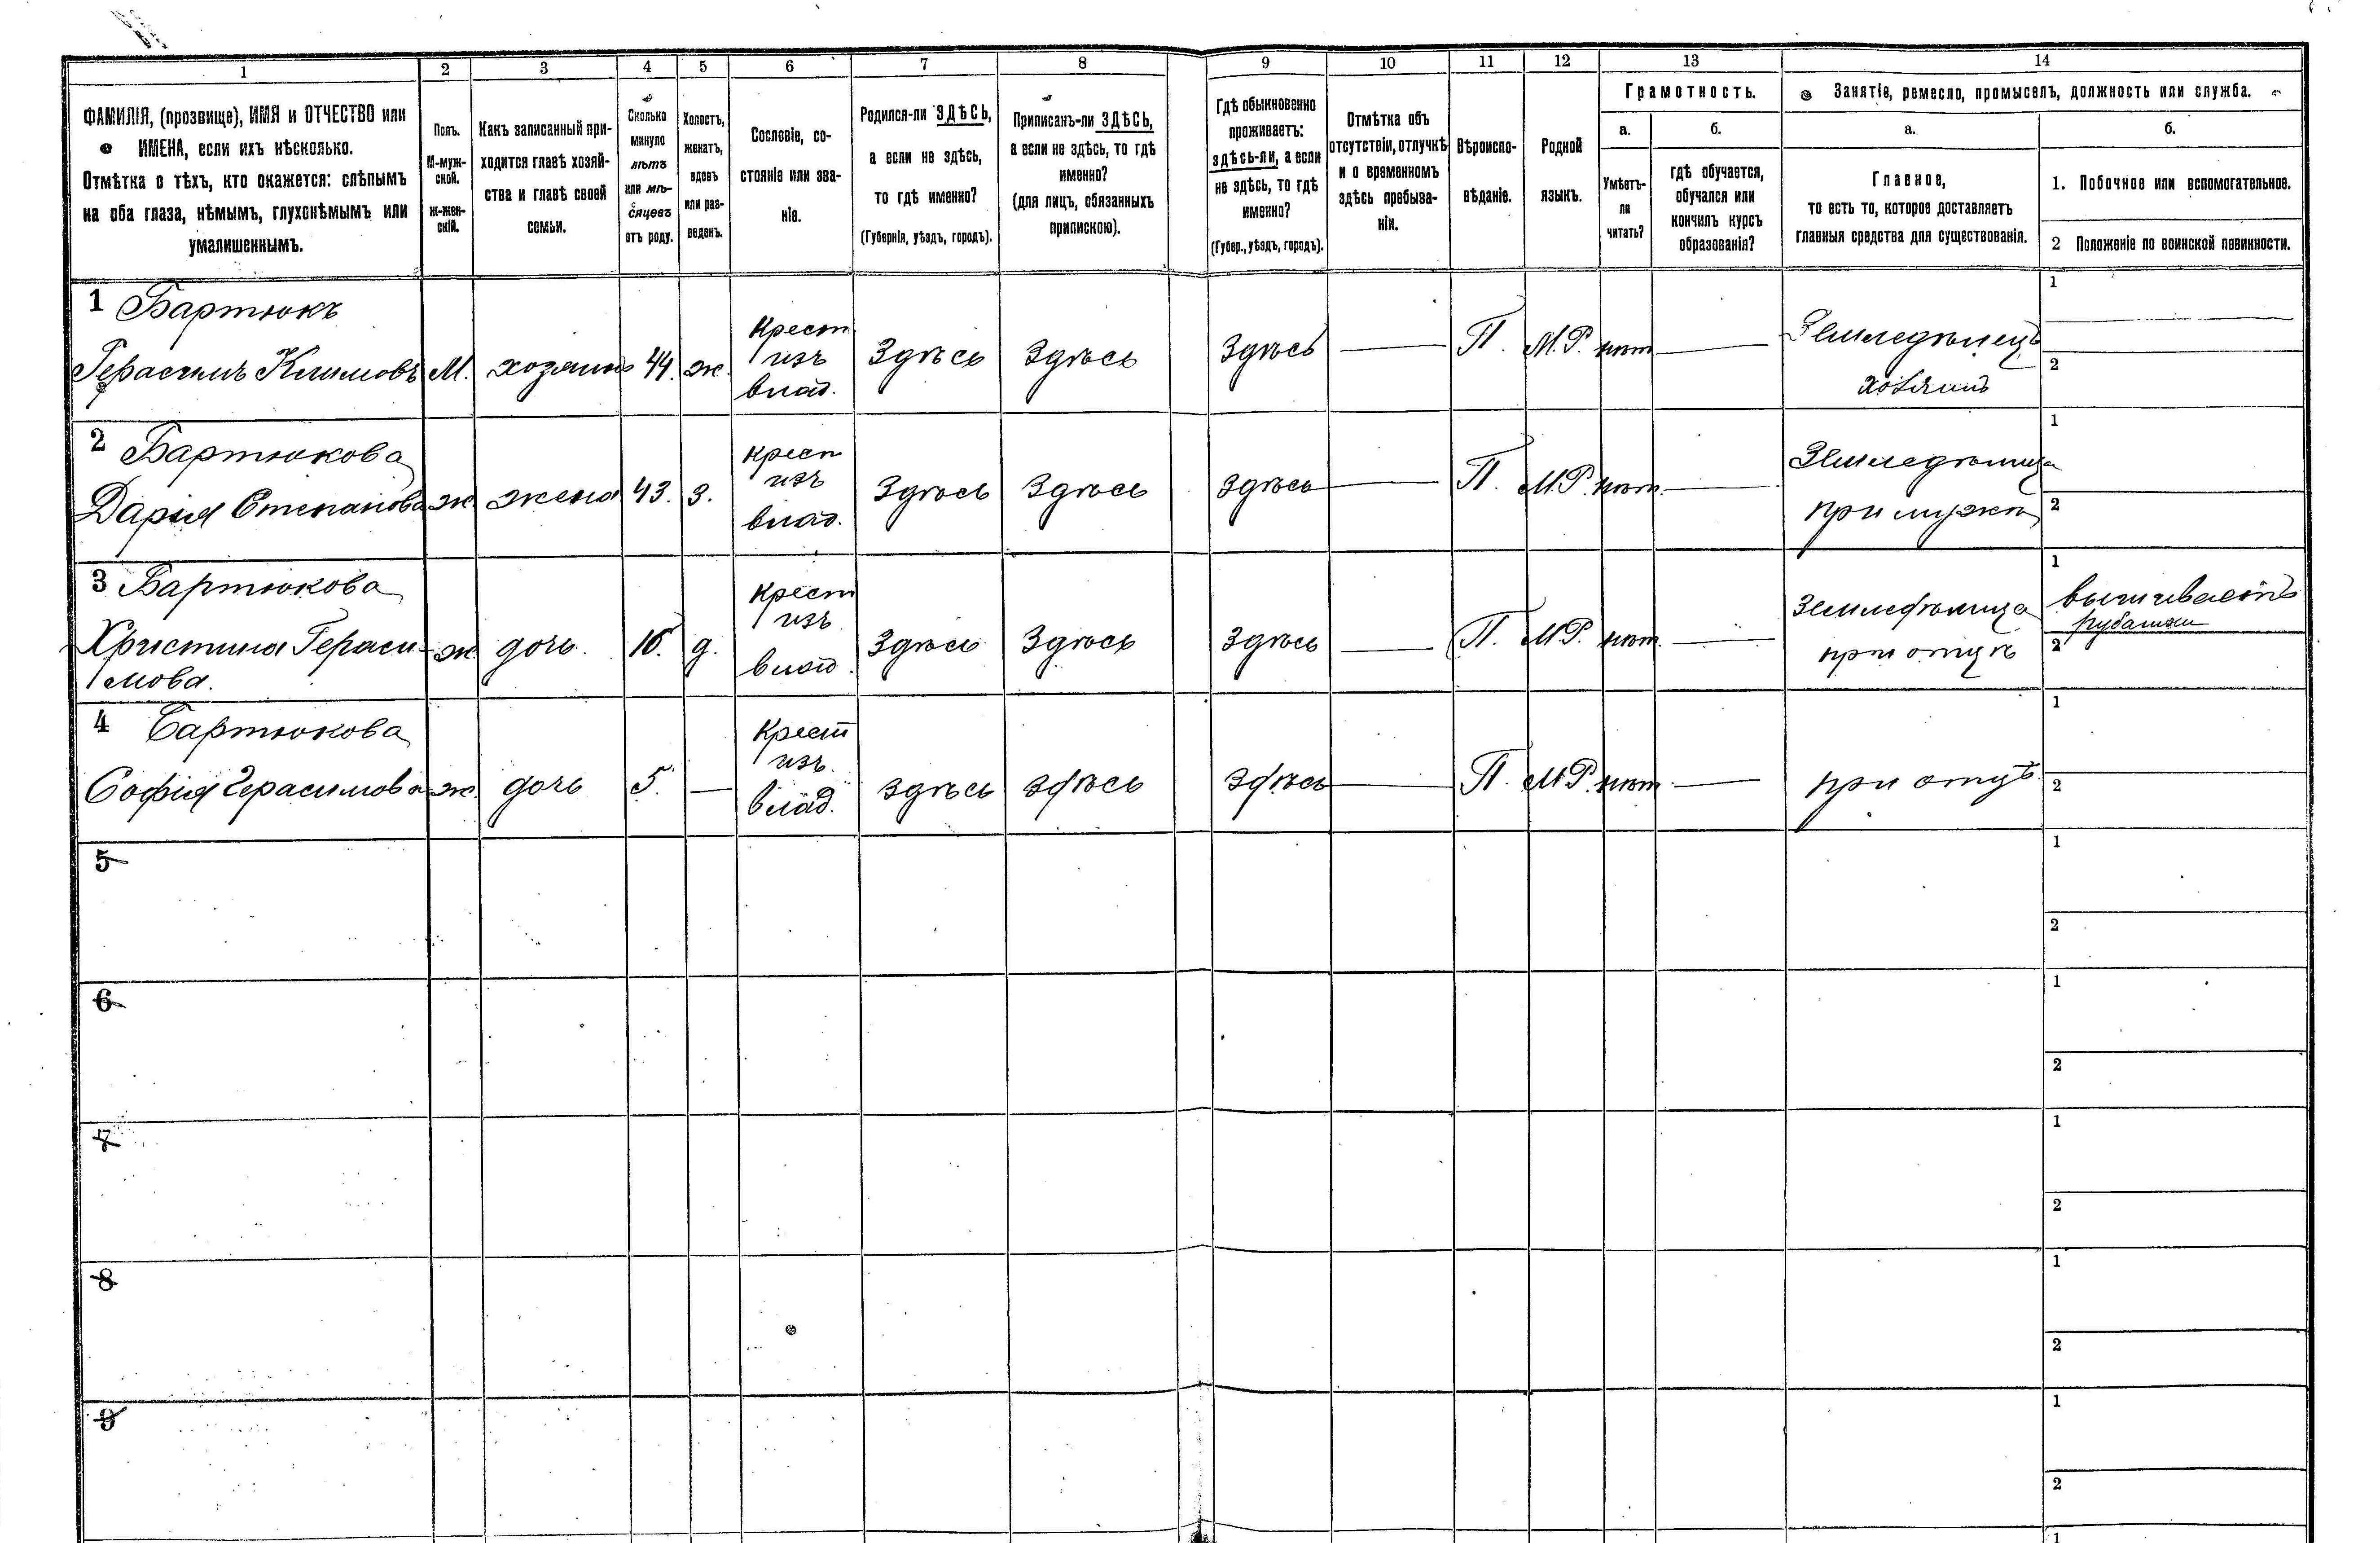 1 2 3 4 5 6 7 8 9 10 11 12 13 14
ФАМИЛІЯ, (прозвище), ИМЯ и ОТЧЕСТВО или
ИМЕНА, если ихъ нѣсколько.
Отмѣтка о тѣхъ, кто окажется: слѣпымъ
на оба глаза, нѣмымъ, глухонѣмымъ или
умалишеннымъ.
Полъ.
М-муж-
ской.
ж-жен-
скій.
Какъ записанный при-
ходится главѣ хозяй-
ства и главѣ своей
семьи.
Сколько
минуло
лѣтъ
или мѣ-
сяцевъ
отъ роду.
Холостъ,
женатъ,
вдовъ
или раз-
веденъ.
Сословіе, со-
стояніе или зва-
ніе.
Родился-ли ЗДѢСЬ,
а если не здѣсь,
то гдѣ именно?
(Губернія, уѣздъ, городъ).
Приписанъ-ли ЗДѢСЬ,
а если не здѣсь, то гдѣ
именно?
(для лицъ, обязанныхъ
припискою).
Гдѣ обыкновенно
проживаетъ:
здѣсь-ли, а если
не здѣсь, то гдѣ
именно?
(Губер., уѣздъ, городъ).
Отмѣтка объ
отсутствіи, отлучкѣ
и о временномъ
здѣсь пребыва-
ніи.
Вѣроиспо-
вѣданіе.
Родной
языкъ.
Грамотность.
а.
Умѣетъ-
ли
читать?
б.
гдѣ обучается,
обучался или
кончилъ курсъ
образованія?
Занятіе, ремесло, промыселъ, должность или служба.
а.
Главное,
то есть то, которое доставляетъ
главныя средства для существованія.
б.
1. Побочное или вспомогательное.
2 Положеніе по воинской повинности.
1 Бартюкъ
Герасимъ Климовъ
М.
хозяинъ
44.
ж.
Крест
изъ
влад.
Здѣсь
Здѣсь
Здѣсь
П.
М.Р.
нѣт
Земледѣлецъ
хозяинъ
1
2
2 Бартюкова
Дарія Степанова
ж
жена
43.
з.
крест
изъ
влад.
Здѣсь
Здѣсь
Здѣсь
П.
М.Р.
нѣт.
Земледѣлица
при мужѣ
1
2
3 Бартюкова
Христина Гераси-
мова.
ж
дочь.
16.
д.
крест
изъ
влад.
Здѣсь
Здѣсь
Здѣсь
П.
М.Р.
нѣт.
Земледѣлица
при отцѣ
1
вышиваетъ
рубашки
2
4 Бартюкова
Софія Герасимова
ж.
дочь
5.
—
Крест
изъ
влад.
здѣсь
здѣсь
здѣсь
П.
М.Р.
нѣт
при отцѣ.
1
2
5
1
2
6
1
2
7
1
2
8
1
2
9
1
2
1